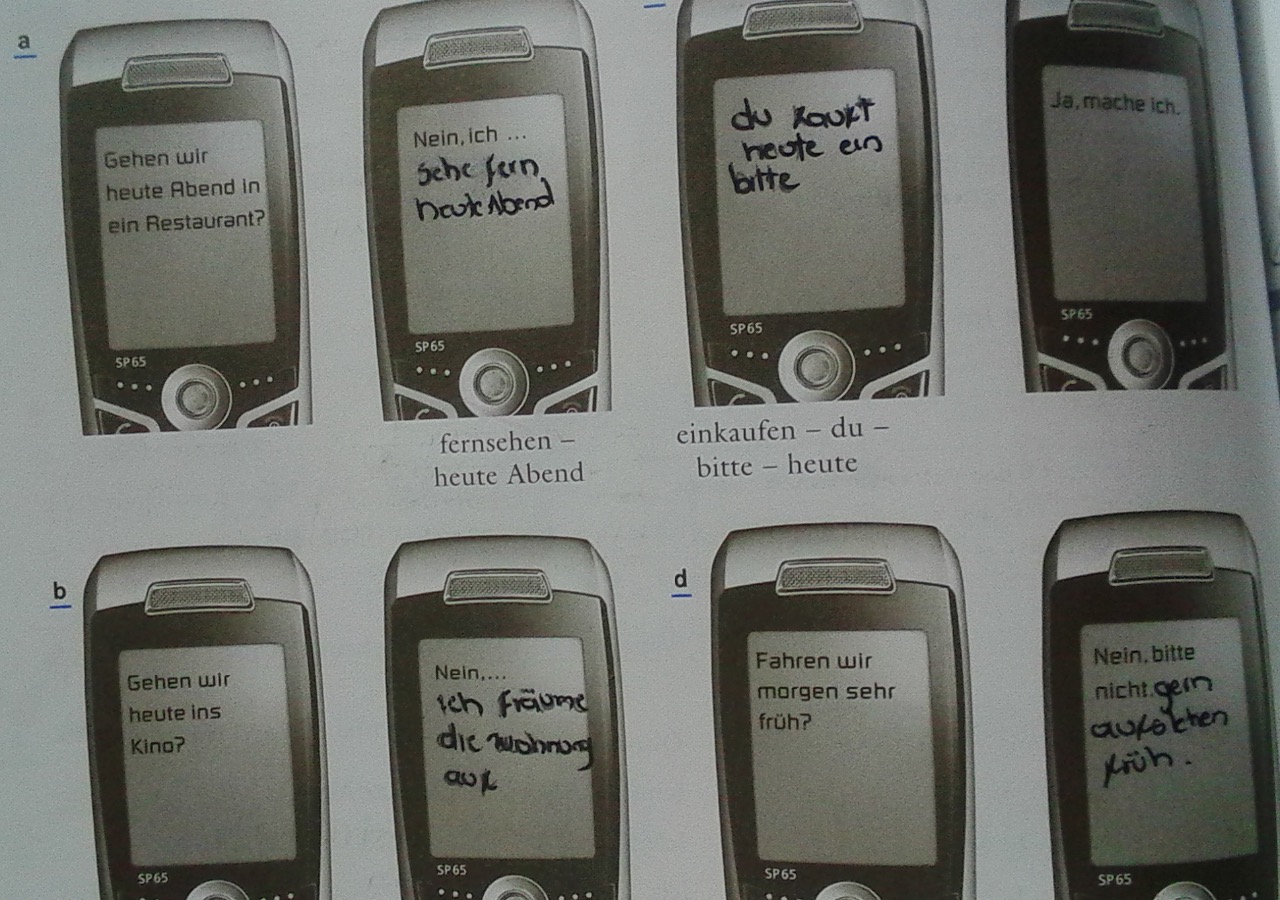 a
Gehen wir
heute Abend in
ein Restaurant?
SP65
Nein, ich ...
sehe fern
heute Abend
SP65
fernsehen –
heute Abend
du kauft
heute ein
bitte
SP65
einkaufen – du –
bitte – heute
Ja, mache ich.
SP65
b
Gehen wir
heute ins
Kino?
SP65
Nein,...
ich fräume
die wohnung
auf
SP65
d
Fahren wir
morgen sehr
früh?
SP65
Nein, bitte
nicht. gern
früh.
SP65